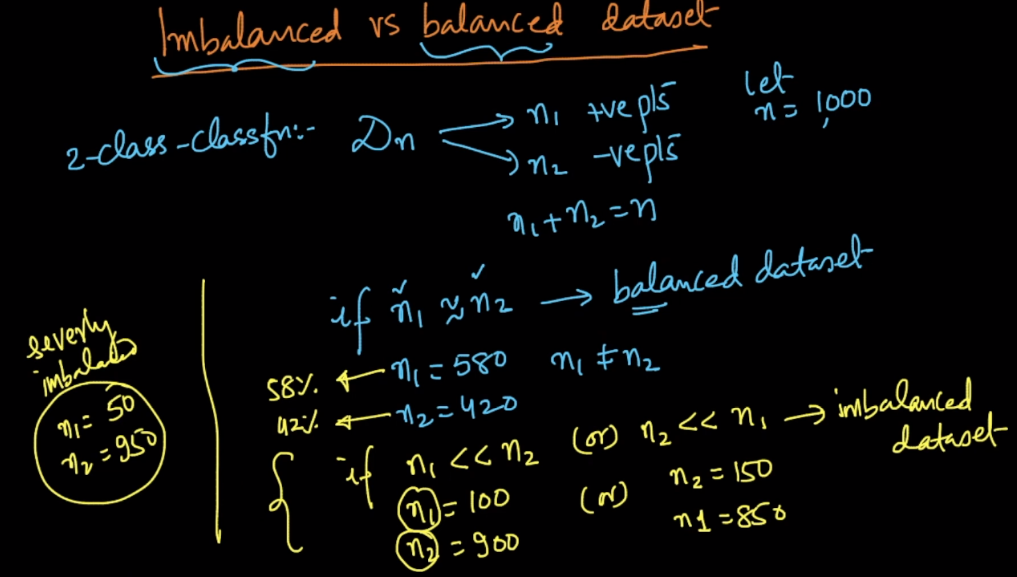 Imbalanced vs balanced dataset
2-class-classfn:- Dn → n1 +ve pts
→ n2 -ve pts
let n = 1,000
n1 + n2 = n
if n1 ≈ n2 → balanced dataset
58% ← n1 = 580 n1 ≠ n2
42% ← n2 = 420
if n1 << n2 (or) n2 << n1 → imbalanced dataset
n1 = 100 (or) n2 = 150
n2 = 900 n1 = 850
severly
imbalaned
n1 = 50
n2 = 950